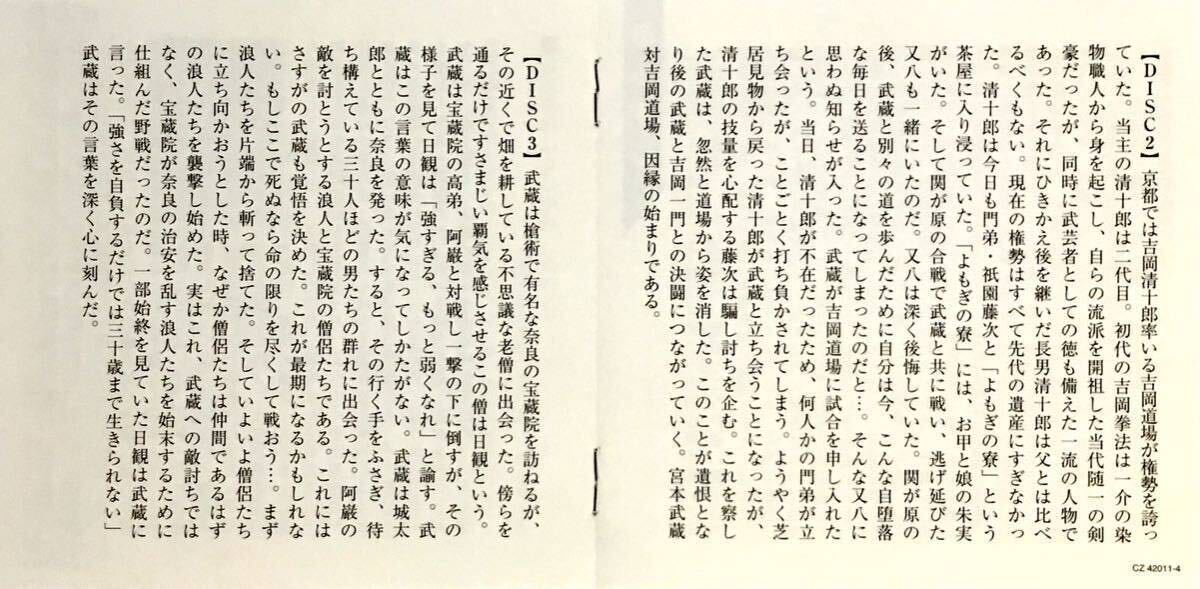 【DISC2】京都では吉岡清十郎率いる吉岡道場が権勢を誇っ
ていた。当主の清十郎は二代目。初代の吉岡拳法は一介の染
物職人から身を起こし、自らの流派を開祖した当代随一の剣
豪だったが、同時に武芸者としての徳も備えた一流の人物で
あった。それにひきかえ後を継いだ長男清十郎は父とは比べ
るべくもない。現在の権勢はすべて先代の遺産にすぎなかっ
た。清十郎は今日も門弟・祇園藤次と「よもぎの寮」という
茶屋に入り浸っていた。「よもぎの寮」には、お甲と娘の朱実
がいた。そして関が原の合戦で武蔵と共に戦い、逃げ延びた
又八も一緒にいたのだ。又八は深く後悔していた。関が原の
後、武蔵と別々の道を歩んだために自分は今、こんな自堕落
な毎日を送ることになってしまったのだと…。そんな又八に
思わぬ知らせが入った。武蔵が吉岡道場に試合を申し入れた
という。当日、清十郎が不在だったため、何人かの門弟が立
ち会ったが、ことごとく打ち負かされてしまう。ようやく芝
居見物から戻った清十郎が武蔵と立ち会うことになったが、
清十郎の技量を心配する藤次は騙し討ちを企む。これを察し
た武蔵は、忽然と道場から姿を消した。このことが遺恨とな
り後の武蔵と吉岡一門との決闘につながっていく。宮本武蔵
対吉岡道場、因縁の始まりである。
【DISC3】武蔵は槍術で有名な奈良の宝蔵院を訪ねるが、
その近くで畑を耕している不思議な老僧に出会った。傍らを
通るだけですさまじい覇気を感じさせるこの僧は日観という。
武蔵は宝蔵院の高弟、阿巌と対戦し一撃の下に倒すが、その
様子を見て日観は「強すぎる、もっと弱くなれ」と諭す。武
蔵はこの言葉の意味が気になってしかたがない。武蔵は城太
郎とともに奈良を発った。すると、その行く手をふさぎ、待
ち構えている三十人ほどの男たちの群れに出会った。阿巌の
敵を討とうとする浪人と宝蔵院の僧侶たちである。これには
さすがの武蔵も覚悟を決めた。これが最期になるかもしれな
い。もしここで死ぬなら命の限りを尽くして戦おう…。まず
浪人たちを片端から斬って捨てた。そしていよいよ僧侶たち
に立ち向かおうとした時、なぜか僧侶たちは仲間であるはず
の浪人たちを襲撃し始めた。実はこれ、武蔵への敵討ちでは
なく、宝蔵院が奈良の治安を乱す浪人たちを始末するために
仕組んだ野戦だったのだ。一部始終を見ていた日観は武蔵に
言った。「強さを自負するだけでは三十歳まで生きられない」
武蔵はその言葉を深く心に刻んだ。
CZ 42011-4